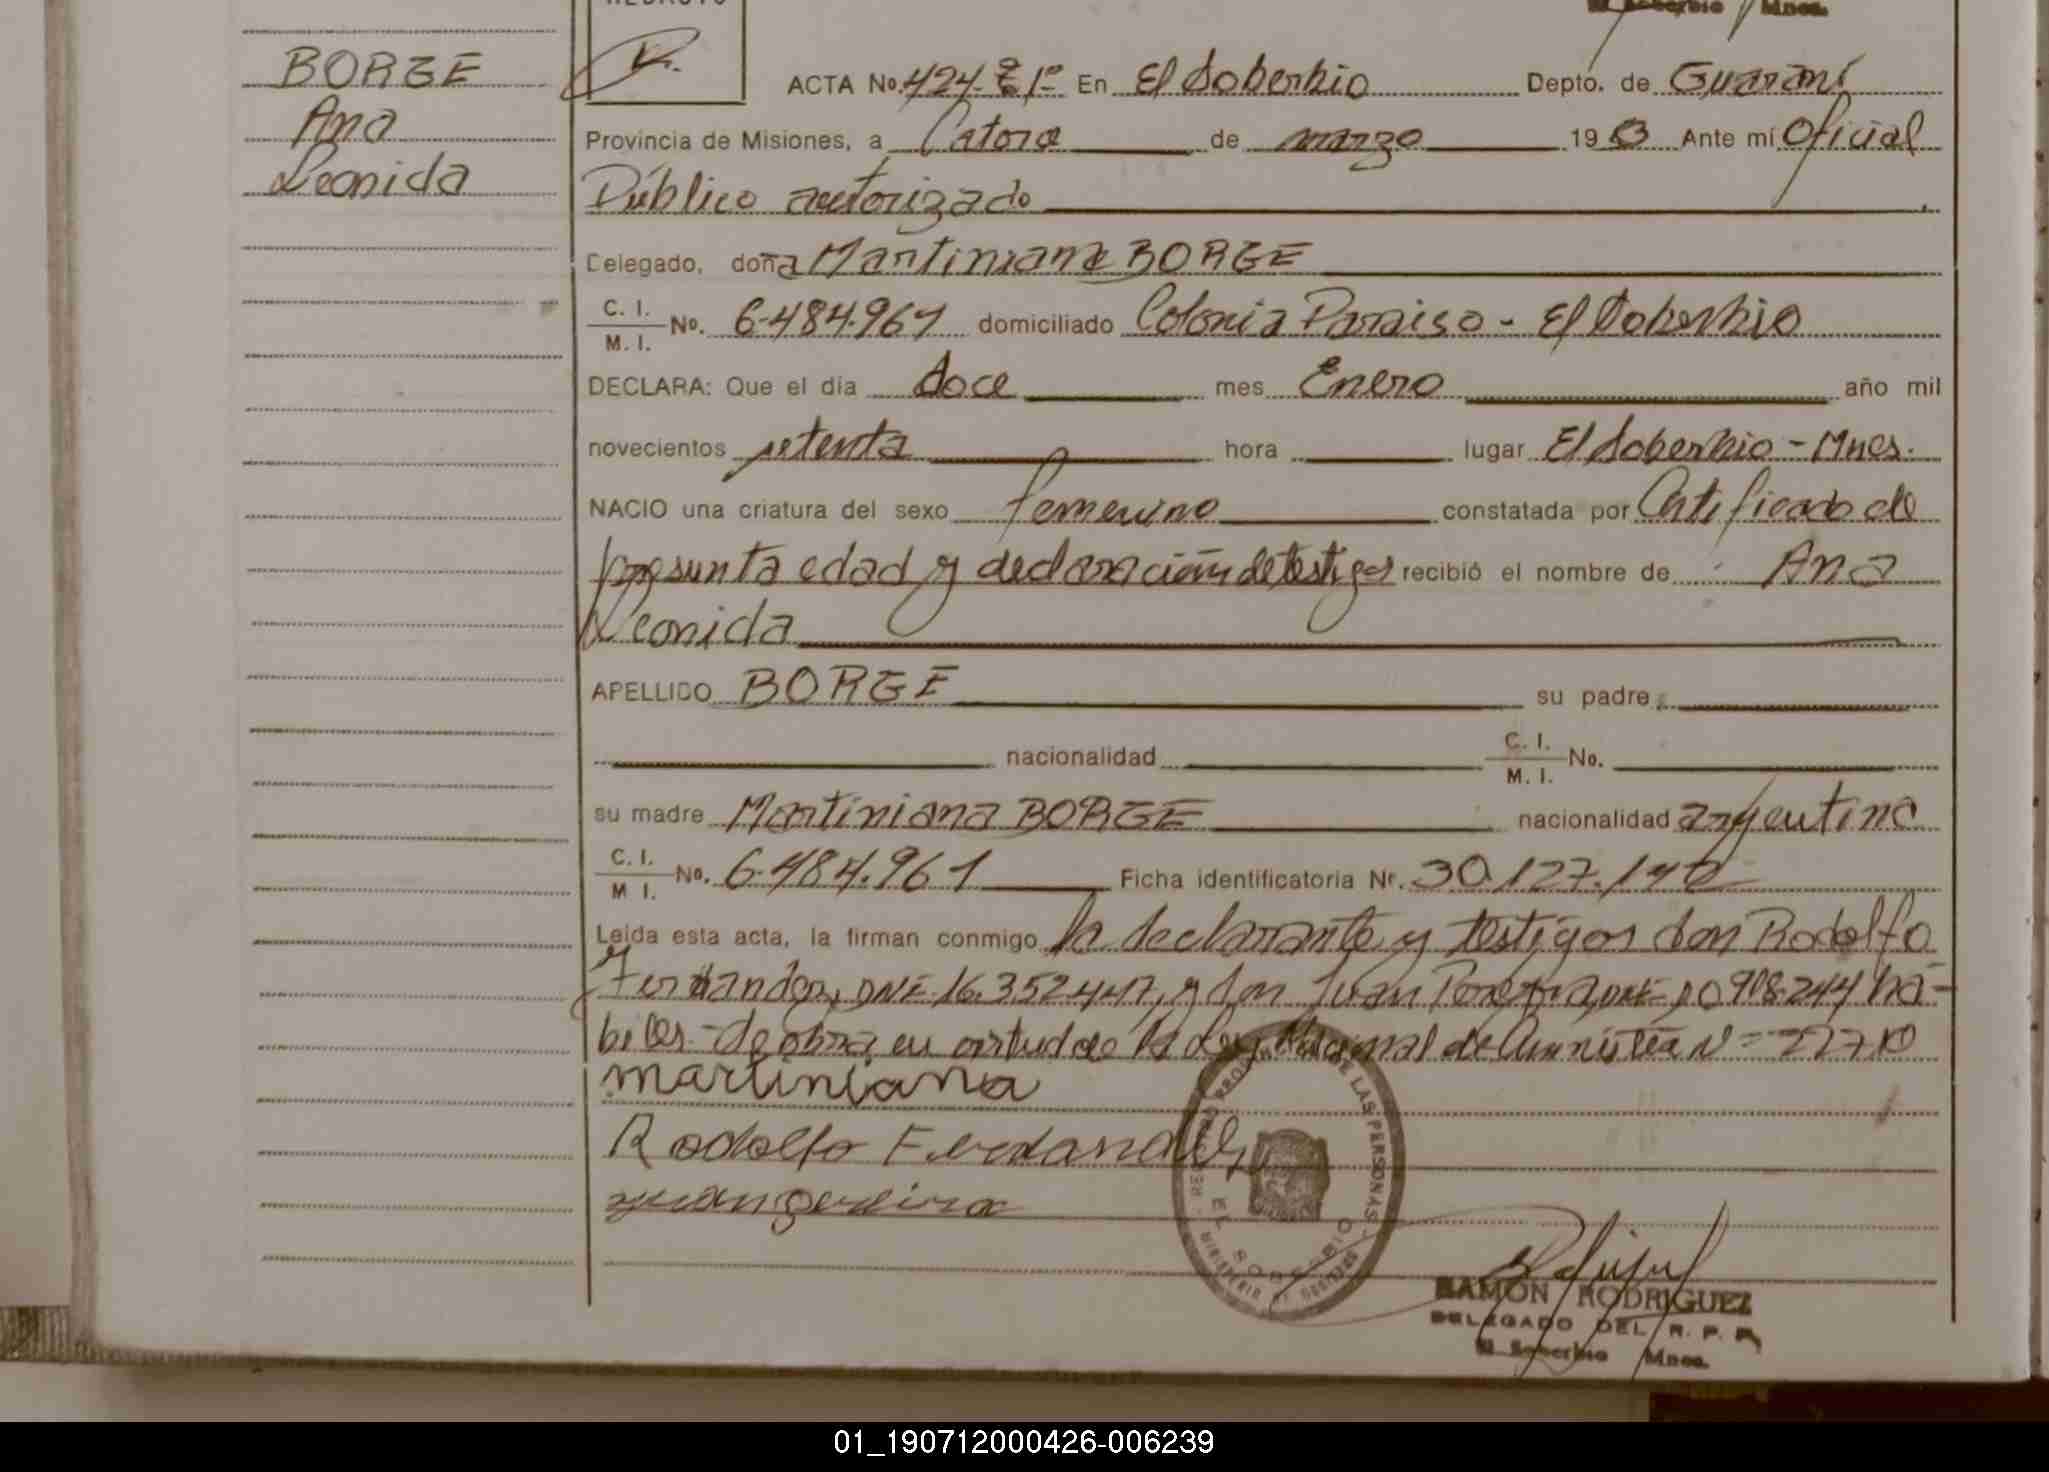 El Soberbio Mnes.
BORGE
Ana
Leonida
ACTA No. 424-Tº 1º- En El Soberbio Depto. de Guaraní
Provincia de Misiones, a Catorce de marzo 19 Ante mí Oficial
Público autorizado
Delegado, doña Martiniana BORGE
C. I.
M. I. No. 6.484.961 domiciliado Colonia Paraiso - El Soberbio
DECLARA: Que el día doce mes Enero año mil
novecientos setenta hora lugar El Soberbio - Mnes.
NACIO una criatura del sexo femenino constatada por Certificado de
presunta edad y declaración de testigos recibió el nombre de Ana
Leonida
APELLIDO BORGE su padre
nacionalidad C. I.
M. I. No.
su madre Martiniana BORGE nacionalidad argentina
C. I.
M. I. No. 6.484.961 Ficha identificatoria Nº. 30.127.142
Leída esta acta, la firman conmigo la declarante y testigos don Rodolfo
DNI. 16.352.447, y don Juan Pereira, 908.244 há-
biles.- Se obra en virtud de la Ley Nacional de Amnistía Nº 22710
martiniana
Rodolfo
Juan Pereira
REGISTRO PROVINCIAL DE LAS PERSONAS
EL SOBERBIO
MINISTERIO DE GOBIERNO
RAMON RODRIGUEZ
DELEGADO DEL R. P. P.
El Soberbio Mnes.
01_190712000426-006239